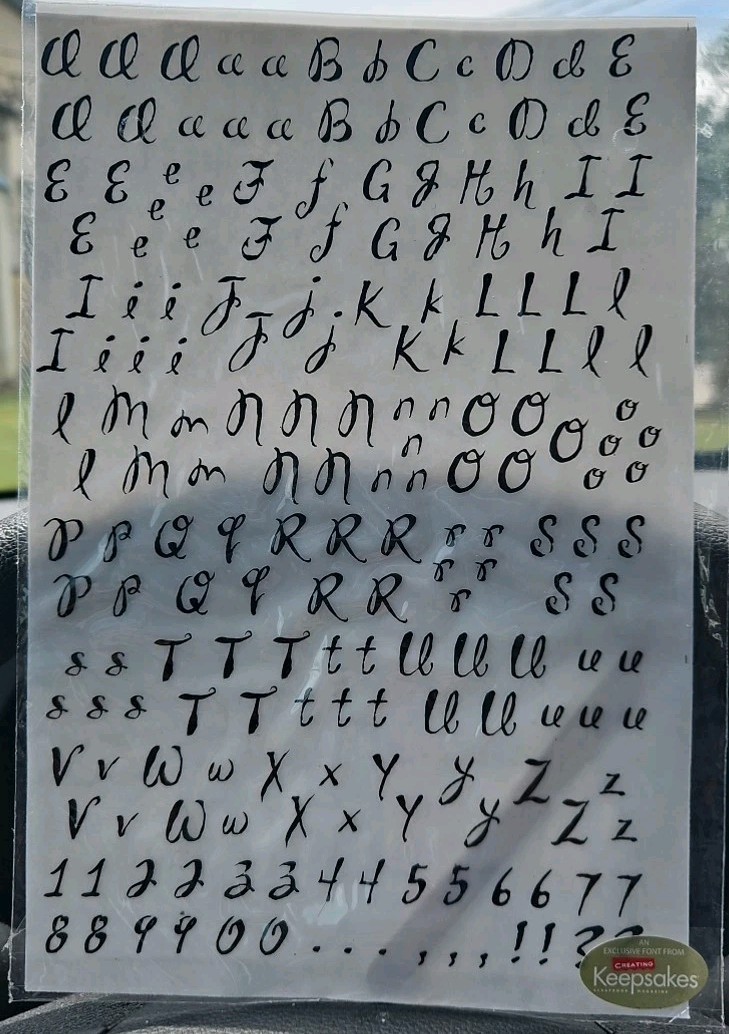 A A A a a B b C c D d E
A A a a a B b C c D d E
E E e e e F f G g H h I I
E e e F f G g H h I
I i i J j K k L L L l
I i i i J j K k L L l l
l M m N N N n n O O O o o o
l M m N N n n n O O o o
P p Q q R R R r r S S S
P p Q q R R r r r S S
s s T T T t t U U U u u
s s s T T t t t U U u u u
V v W w X x Y y Z z
V v W w X x Y y Z z
1 1 2 2 3 3 4 4 5 5 6 6 7 7
8 8 9 9 0 0 . . . , , , ! ! ? ?
AN
EXCLUSIVE FONT FROM
CREATING
Keepsakes
SCRAPBOOK MAGAZINE